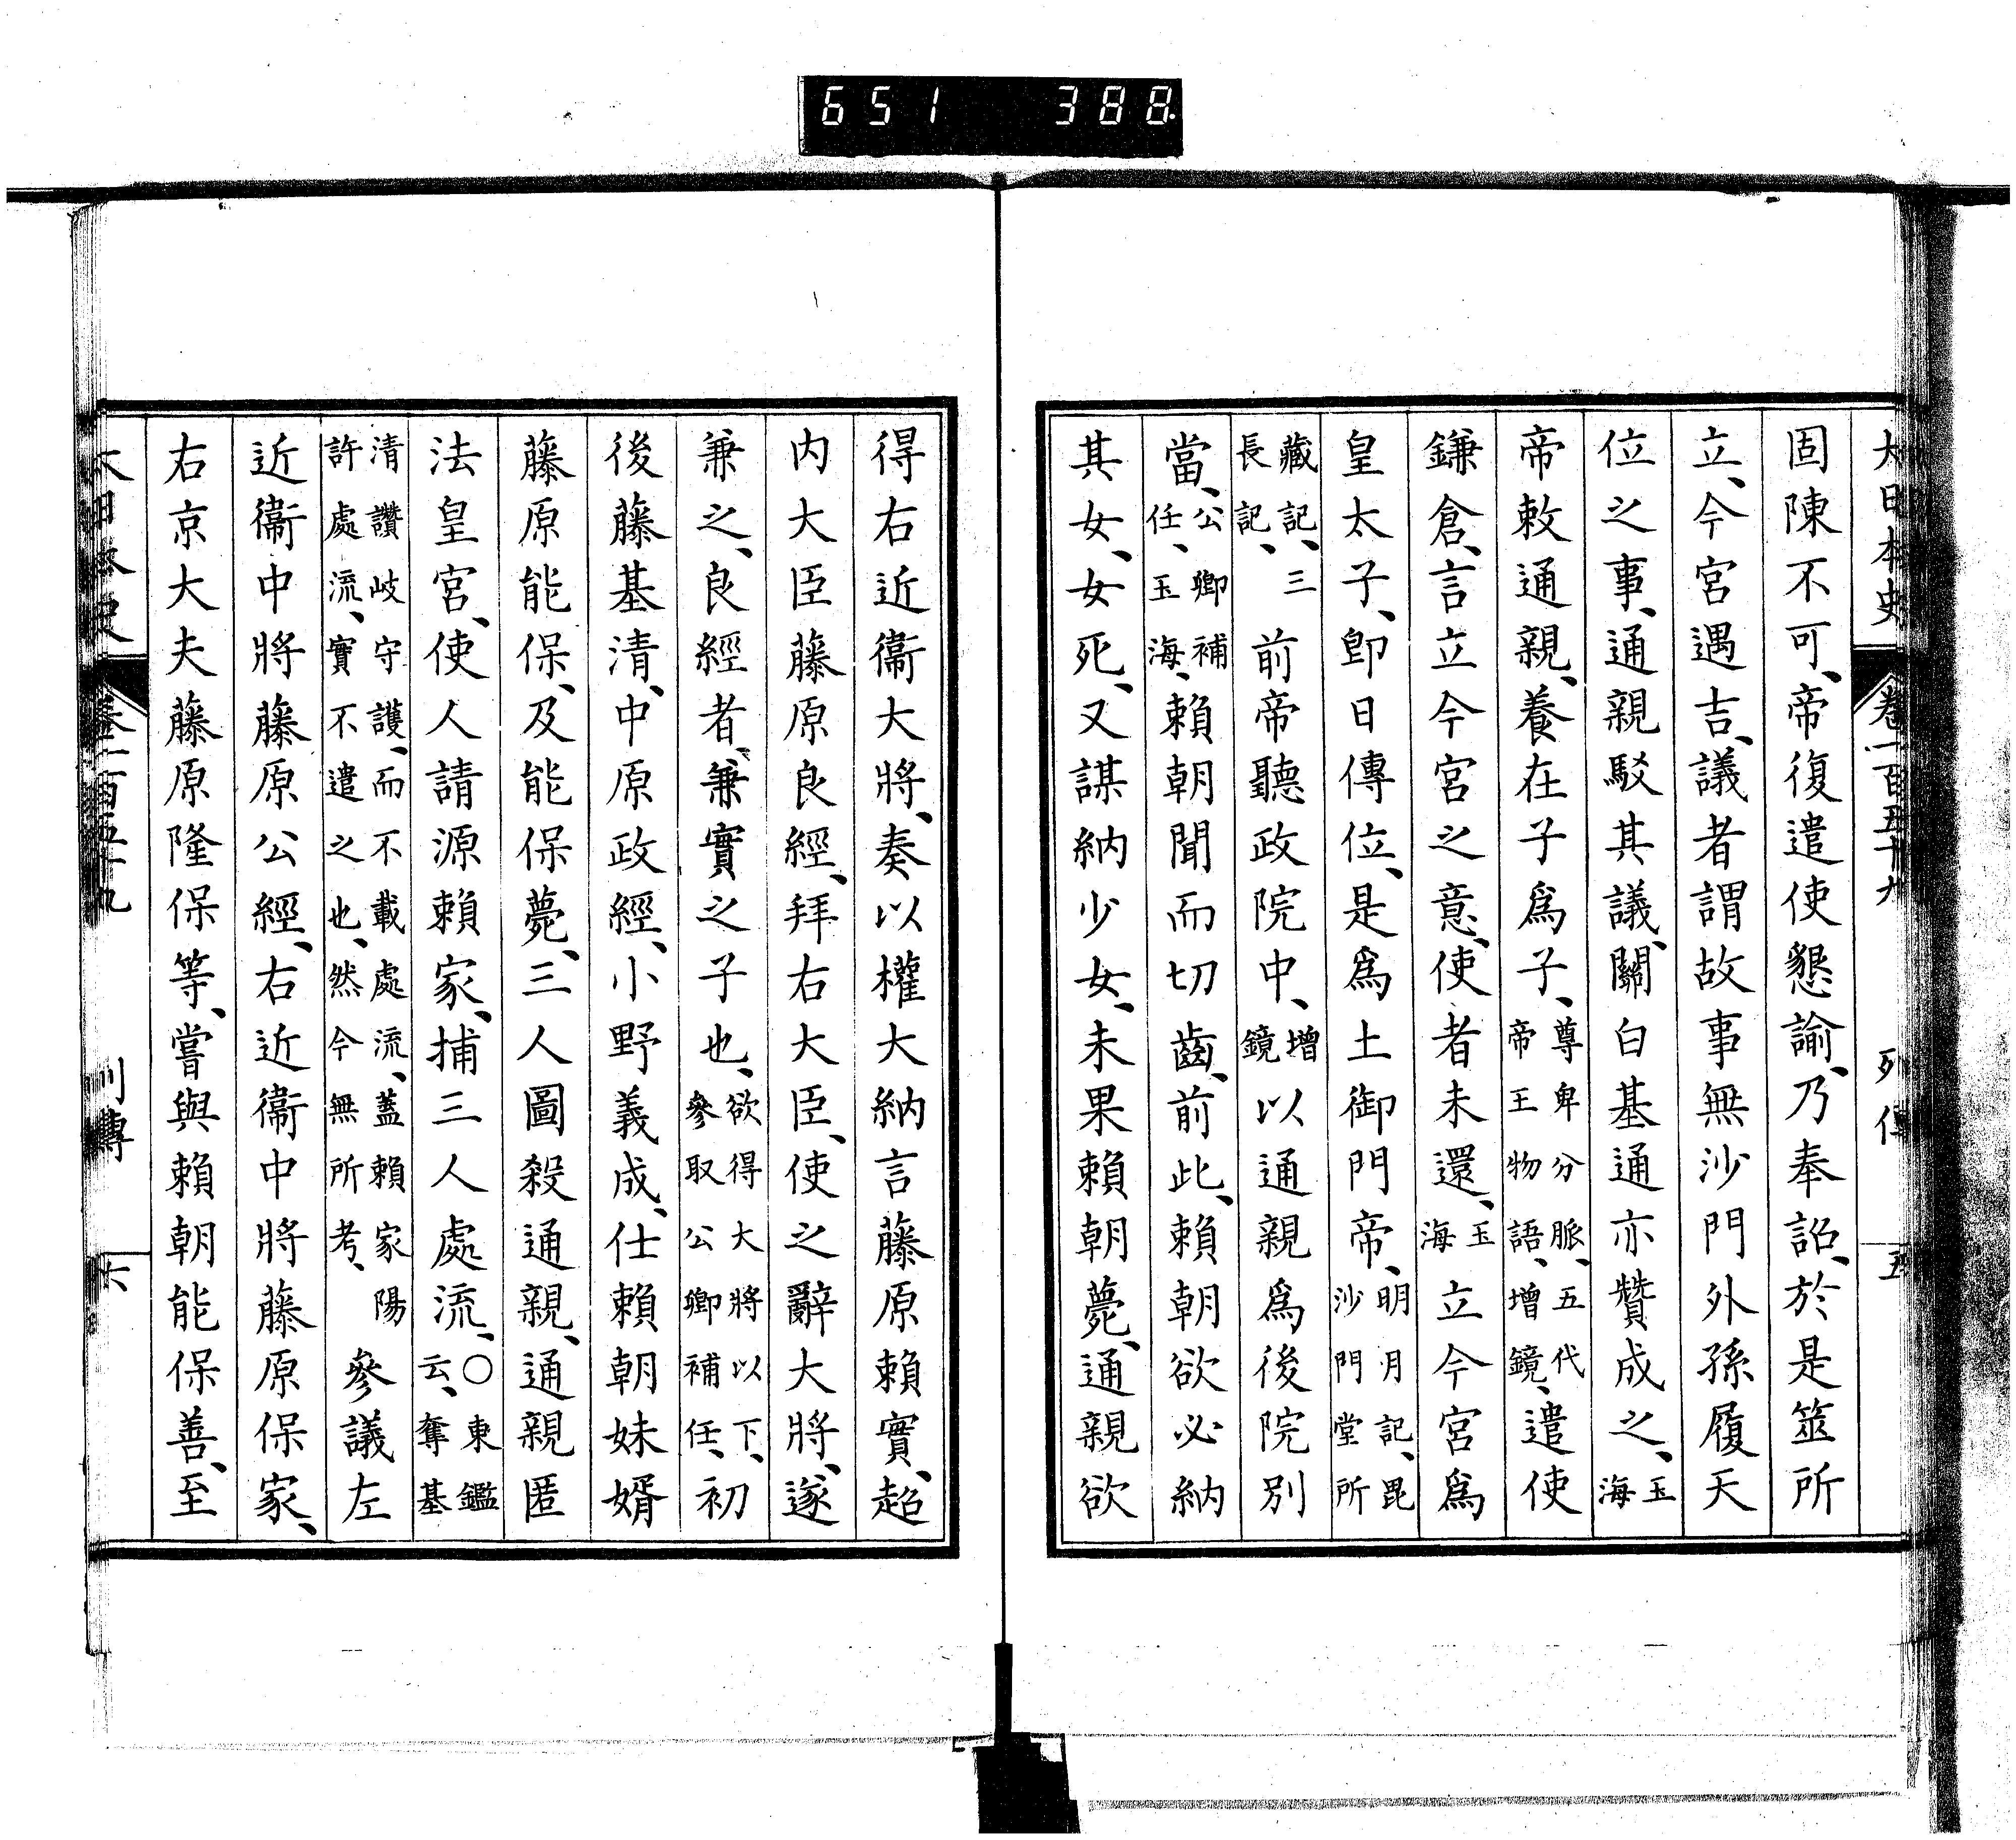 651 388
大日本史 卷一百五十九 列傳 五
固陳不可、帝復遣使懇諭、乃奉詔、於是筮所
立、今宮遇吉、議者謂故事無沙門外孫履天
位之事、通親駁其議、關白基通亦贊成之、玉海
帝敕通親、養在子爲子、尊卑分脈、五代帝王物語、增鏡、遣使
鎌倉、言立今宮之意、使者未還、玉海立今宮爲
皇太子、卽日傳位、是爲土御門帝、明月記、毘沙門堂所
藏記、三長記、前帝聽政院中、增鏡以通親爲後院別
當、公卿補任、玉海、賴朝聞而切齒、前此、賴朝欲必納
其女、女死、又謀納少女、未果賴朝薨、通親欲
得右近衞大將、奏以權大納言藤原賴實、超
内大臣藤原良經、拜右大臣、使之辭大將、遂
兼之、良經者、兼實之子也、欲得大將以下、參取公卿補任、初
後藤基清、中原政經、小野義成、仕賴朝妹婿
藤原能保、及能保薨、三人圖殺通親、通親匿
法皇宮、使人請源賴家、捕三人處流、○東鑑云、奪基
清讚岐守護、而不載處流、蓋賴家陽許處流、實不遣之也、然今無所考、參議左
近衞中將藤原公經、右近衞中將藤原保家、
右京大夫藤原隆保等、嘗與賴朝能保善、至
大日本史 卷一百五十九 列傳 六